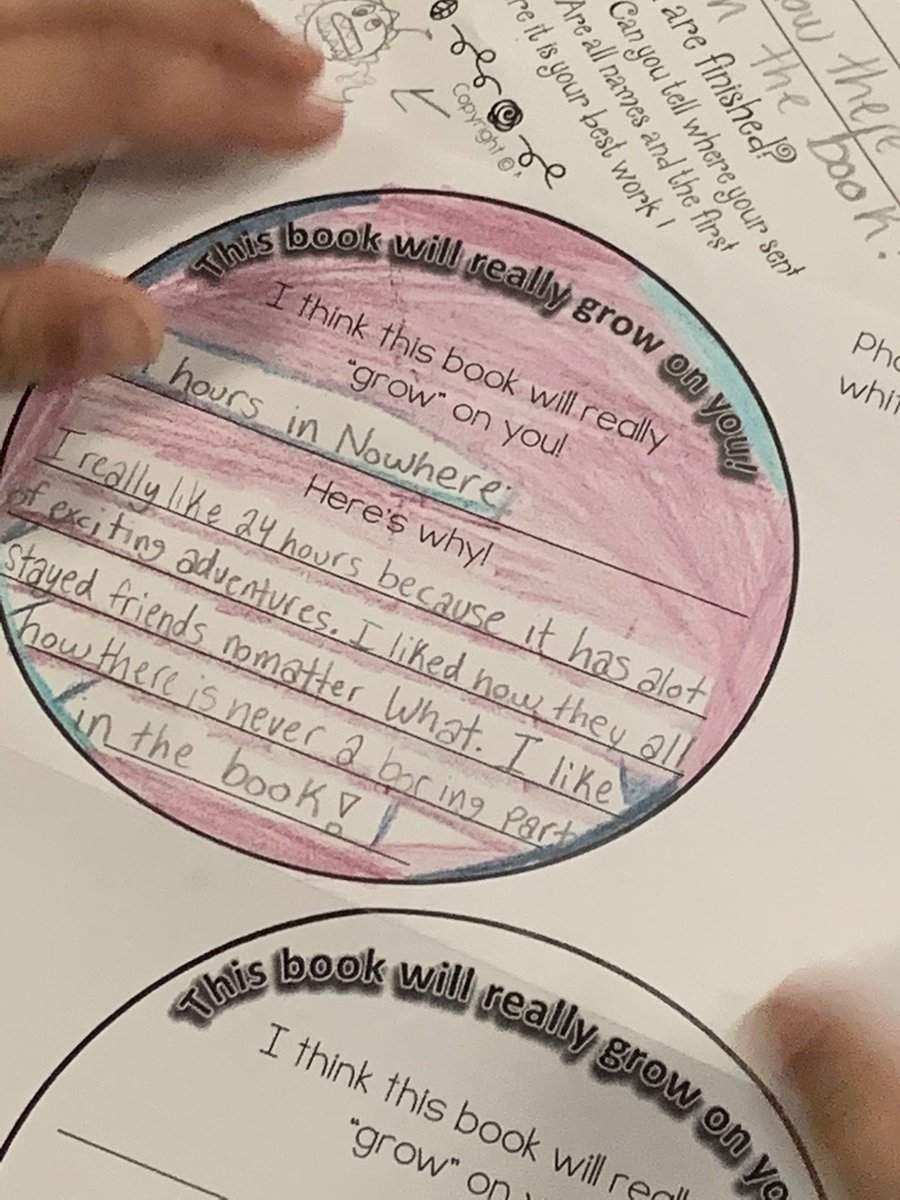 are finished?
Can you tell where your sent
Are all names and the first
re it is your best work!
Copyright ©,
ow there
the
book!
Pho
whit
This book will really grow on you!
I think this book will really
"grow" on you!
hours in Nowhere.
Here's why!
I really like 24 hours because it has alot
of exciting adventures. I liked how they all
stayed friends nomatter what. I like
how there is never a boring part
in the book!
This book will really grow on yo
I think this book will reall
"grow" on